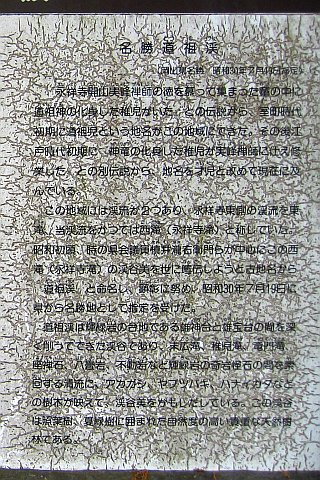 名勝道祖渓
(岡山県名勝 昭和30年7月19日指定)
永祥寺開山実峰禅師の徳を慕って集まった竜の中に
道祖神の化身した稚児がいた、との伝説から、室町時代
初期に道祖児という地名がこの地域にできた。その後江
戸時代初期に、神竜の化身した稚児が実峰禅師に仕え冬
った、との別伝説から、地名を才児と改めて現在に及
んでいる。
この地域には渓流が2つあり、永祥寺東側の渓流を東
滝、当渓流をかつては西滝(永祥寺滝)と称していた。
昭和初頭、時の県会議員 右衛門らが中心にこの西
滝(永祥寺滝)の渓谷美を世に喧伝しようと古地名から
「道祖渓」と命名し、顕彰に努め、昭和30年7月19日に
県から名勝地として指定を受けた。
道祖渓は輝緑岩の台地である 神台と 宝台の間を深
く削ってできた渓谷であり、末広滝、稚児滝、竜門滝、
座禅石、八畳岩、不動岩など輝緑岩の奇岩怪石の間を
回する清流に、アカガシ、ヤブツバキ、ハナイカダなど
の樹木が映えて、渓谷美をかもしだしている。この渓谷
は照葉樹、夏緑樹に囲まれた自然度の高い貴重な天然樹
林である。